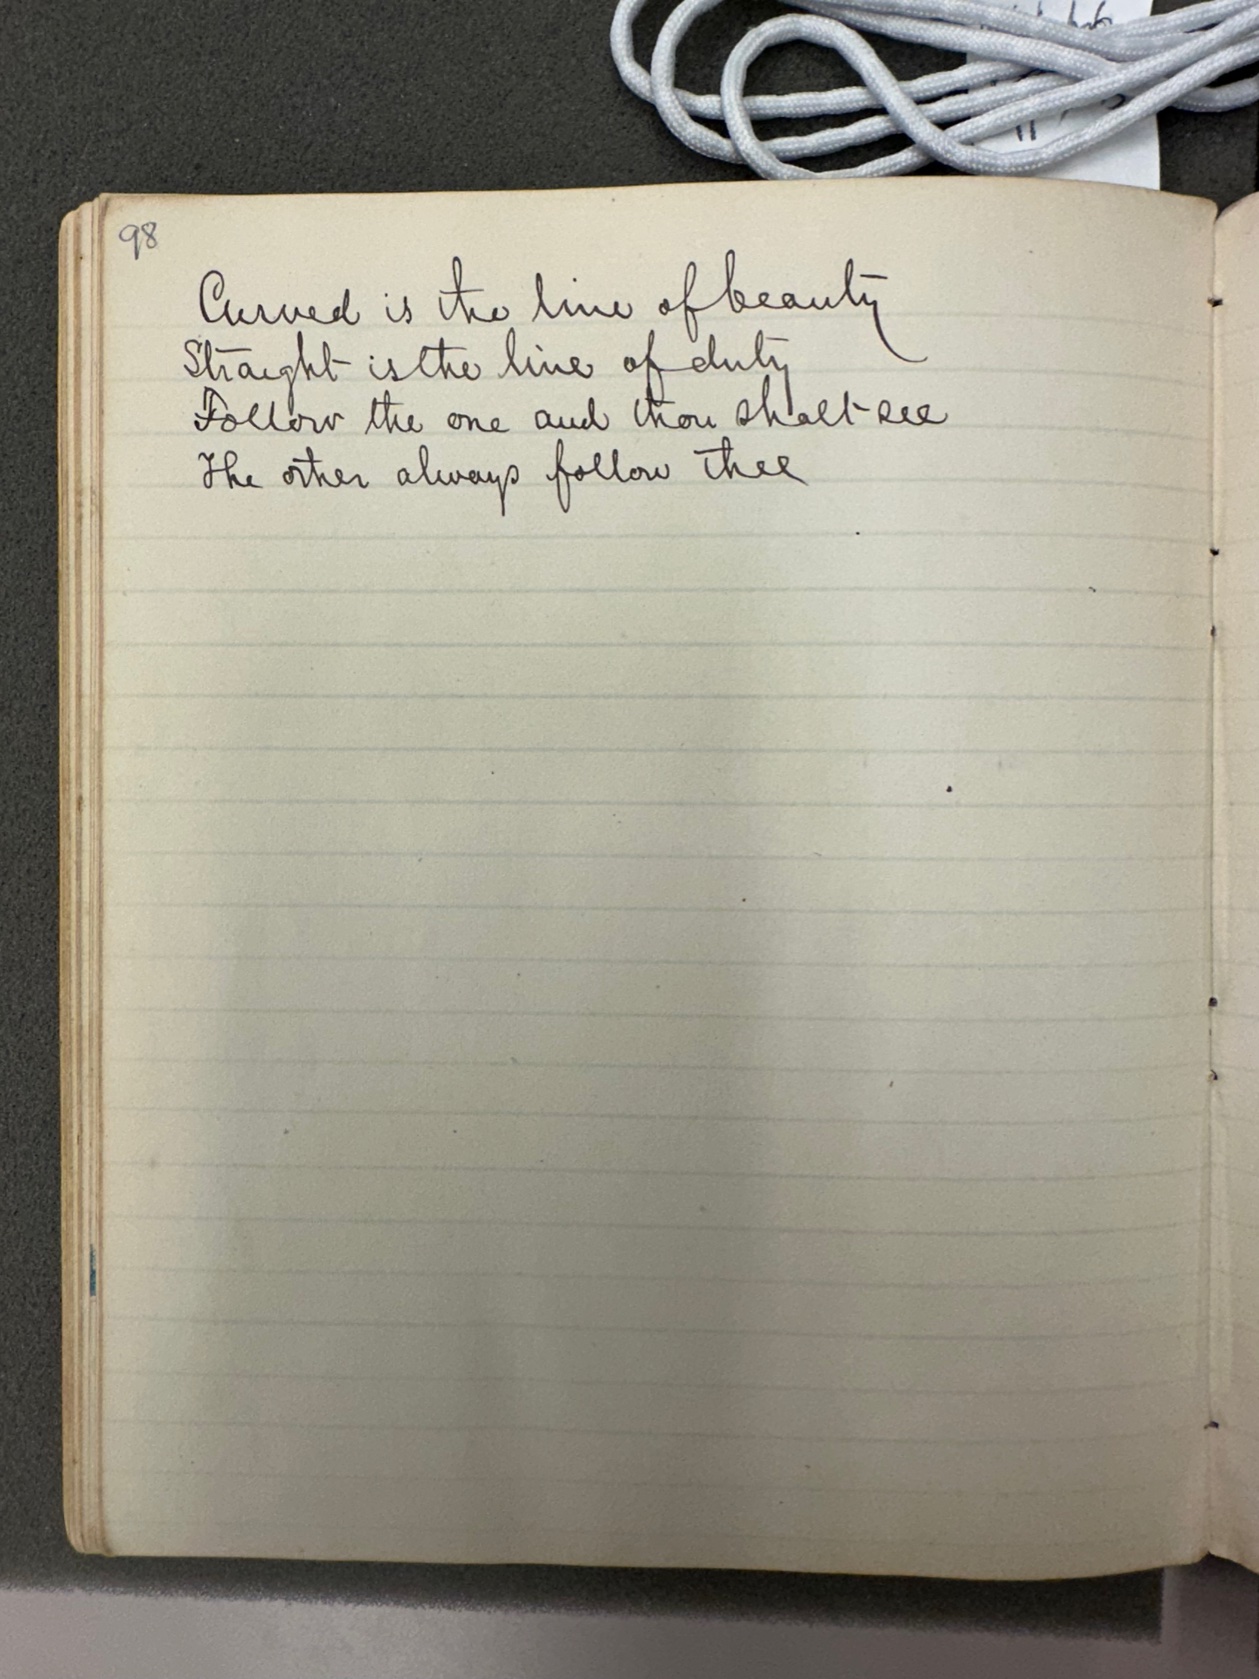 98
Curved is the line of beauty
Straight is the line of duty
Follow the one and thou shalt see
The other always follow thee